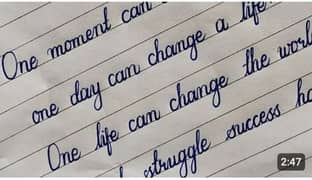 One moment can
one day can change a life
One life can change the worl
struggle success ha
2:47